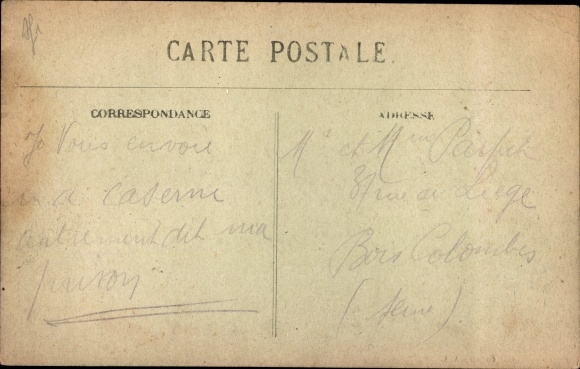 CARTE POSTALE
CORRESPONDANCE
Je Vous envoie
ma caserne
autrement dit ma
prison
ADRESSE
Mr et Mme Parfait
rue de Liège
Bois Colombes
(Seine)